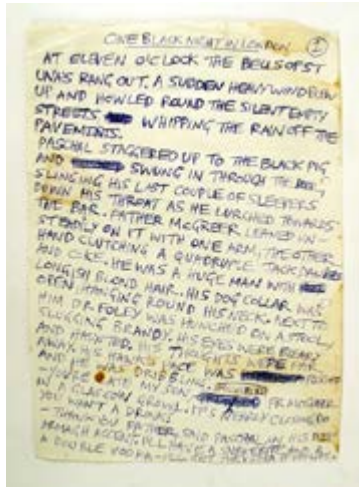 ONE BLACK NIGHT IN LONDON ①
AT ELEVEN O'CLOCK THE BELLS OF ST
UNA'S RANG OUT. A SUDDEN HEAVY WIND BLEW
UP AND HOWLED ROUND THE SILENT EMPTY
STREETS. WHIPPING THE RAIN OFF THE
PAVEMENTS.
PASCHAL STAGGERED UP TO THE BLACK PIG
AND SWUNG IN THROUGH THE DOOR,
SLINGING HIS LAST COUPLE OF SLEEPERS
DOWN HIS THROAT AS HE LURCHED TOWARDS
THE BAR. FATHER McGREER LEANED UN-
STEADILY ON IT WITH ONE ARM, THE OTHER
HAND CLUTCHING A QUADRUPLE JACK DANIELS
AND COKE. HE WAS A HUGE MAN WITH
LONGISH BLOND HAIR. HIS DOG COLLAR WAS
OPEN HANGING ROUND HIS NECK. NEXT TO
HIM DR FOLEY WAS HUNCHED ON A STOOL,
SLUGGING BRANDY. HIS EYES WERE BLEARY
AND HAUNTED. HIS THOUGHTS WERE FAR
AWAY. HIS FACE WAS
AND HE WAS DRIBBLING.
- YOU'RE LATE MY SON, FR McGREER
IN A GLASGOW GROWL. IT'S NEARLY CLOSING. DO
YOU WANT A DRINK?
- THANK YOU FATHER, SAID PASCHAL IN HIS
ARMAGH ACCENT. I'LL HAVE A
A DOUBLE VODKA